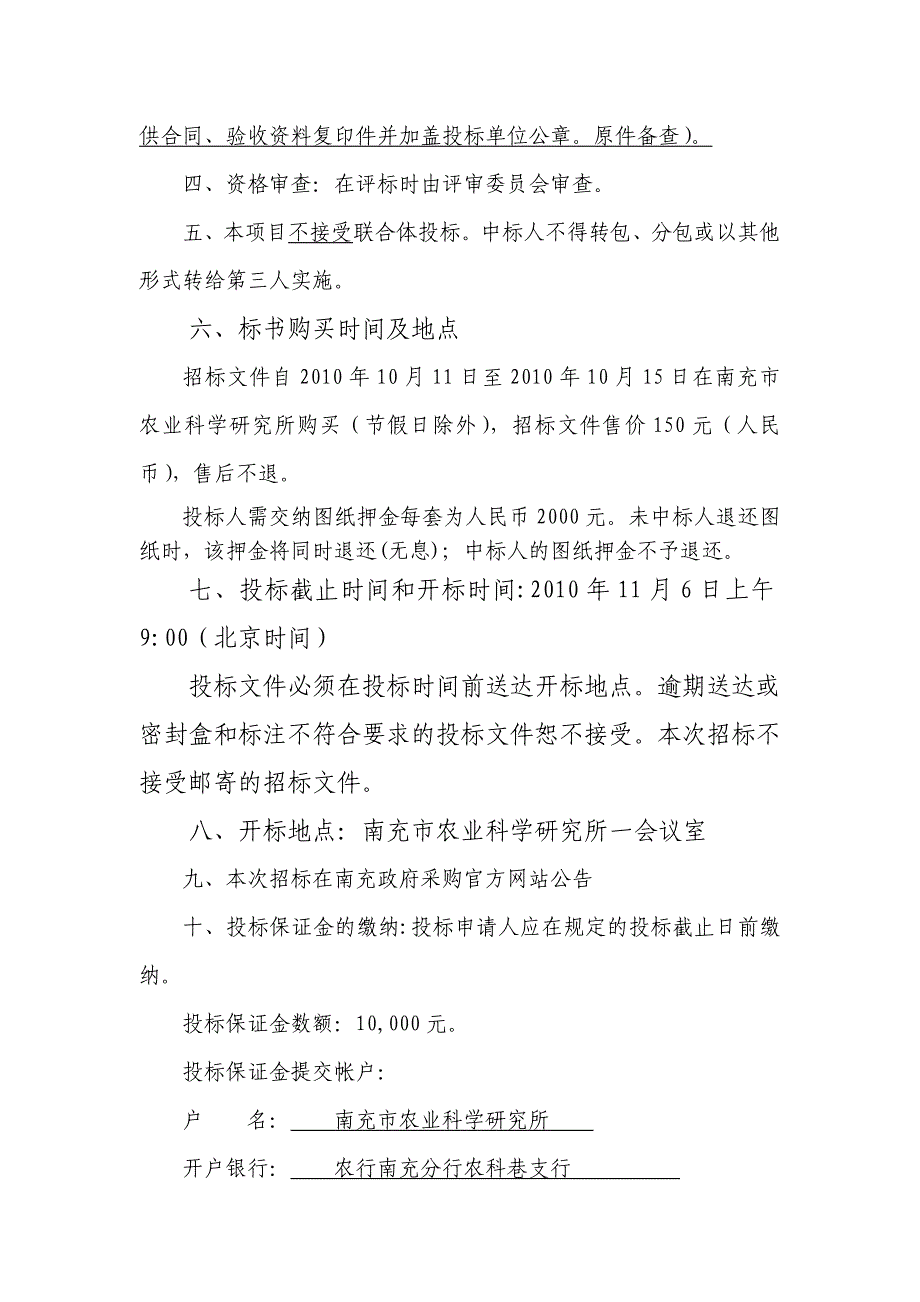 供合同、验收资料复印件并加盖投标单位公章。原件备查)。
四、资格审查：在评标时由评审委员会审查。
五、本项目不接受联合体投标。中标人不得转包、分包或以其他
形式转给第三人实施。
六、标书购买时间及地点
招标文件自 2010 年 10 月 11 日至 2010 年 10 月 15 日在南充市
农业科学研究所购买（节假日除外），招标文件售价 150 元（人民
币），售后不退。
投标人需交纳图纸押金每套为人民币 2000 元。未中标人退还图
纸时，该押金将同时退还(无息)；中标人的图纸押金不予退还。
七、投标截止时间和开标时间:2010 年 11 月 6 日上午
9:00（北京时间）
投标文件必须在投标时间前送达开标地点。逾期送达或
密封盒和标注不符合要求的投标文件恕不接受。本次招标不
接受邮寄的招标文件。
八、开标地点：南充市农业科学研究所一会议室
九、本次招标在南充政府采购官方网站公告
十、投标保证金的缴纳:投标申请人应在规定的投标截止日前缴
纳。
投标保证金数额：10,000 元。
投标保证金提交帐户：
户　　名：　南充市农业科学研究所
开户银行：　农行南充分行农科巷支行